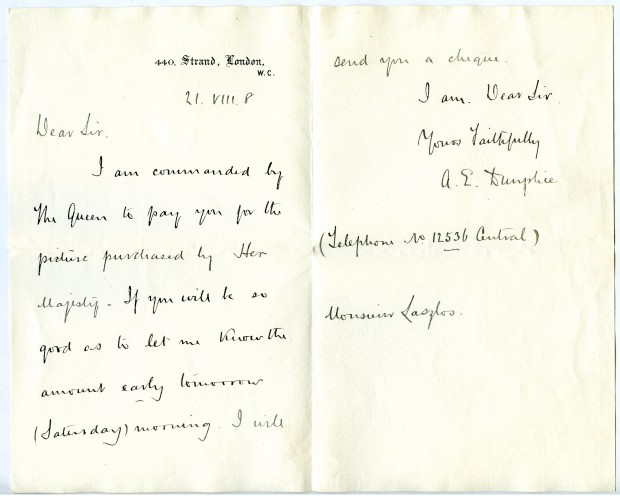 440, Strand, London,
W.C.
21. VIII. 8
Dear Sir.
I am commanded by
The Queen to pay you for the
picture purchased by Her
Majesty. If you will be so
good as to let me know the
amount early tomorrow
(Saturday) morning. I will
send you a cheque.
I am. Dear Sir.
Yours Faithfully
A. E.
(Telephone No 12536 Central)
Monsieur Laszlos.